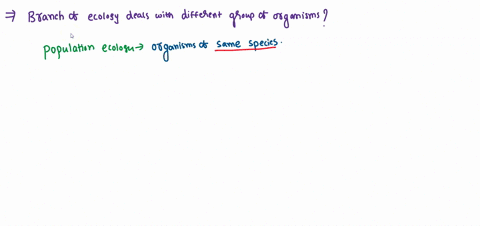 ⇒ Branch of ecology deals with different group of organisms?
Population ecology → organisms of same species.